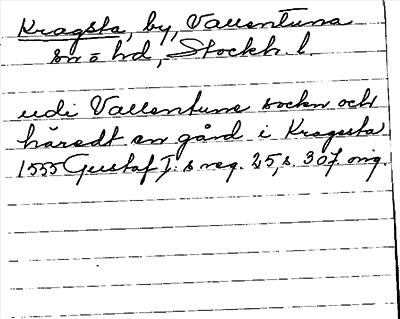 Kragsta, by, Vallentuna
sn o hd, Stockh. l.
udi Vallentune sockn och
häredt en gård i Kragesta
1555 Gustaf I:s reg. 25, s. 307. orig.